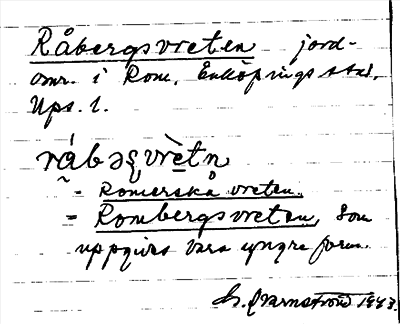 Råbergsvreten jord-
omr. i Rom, Enköpings stad,
Ups. l.
rá̰bəʂvrètn
= Romerskå vreten.
= Rombergsvreten, som
uppgives vara yngre form.
1943